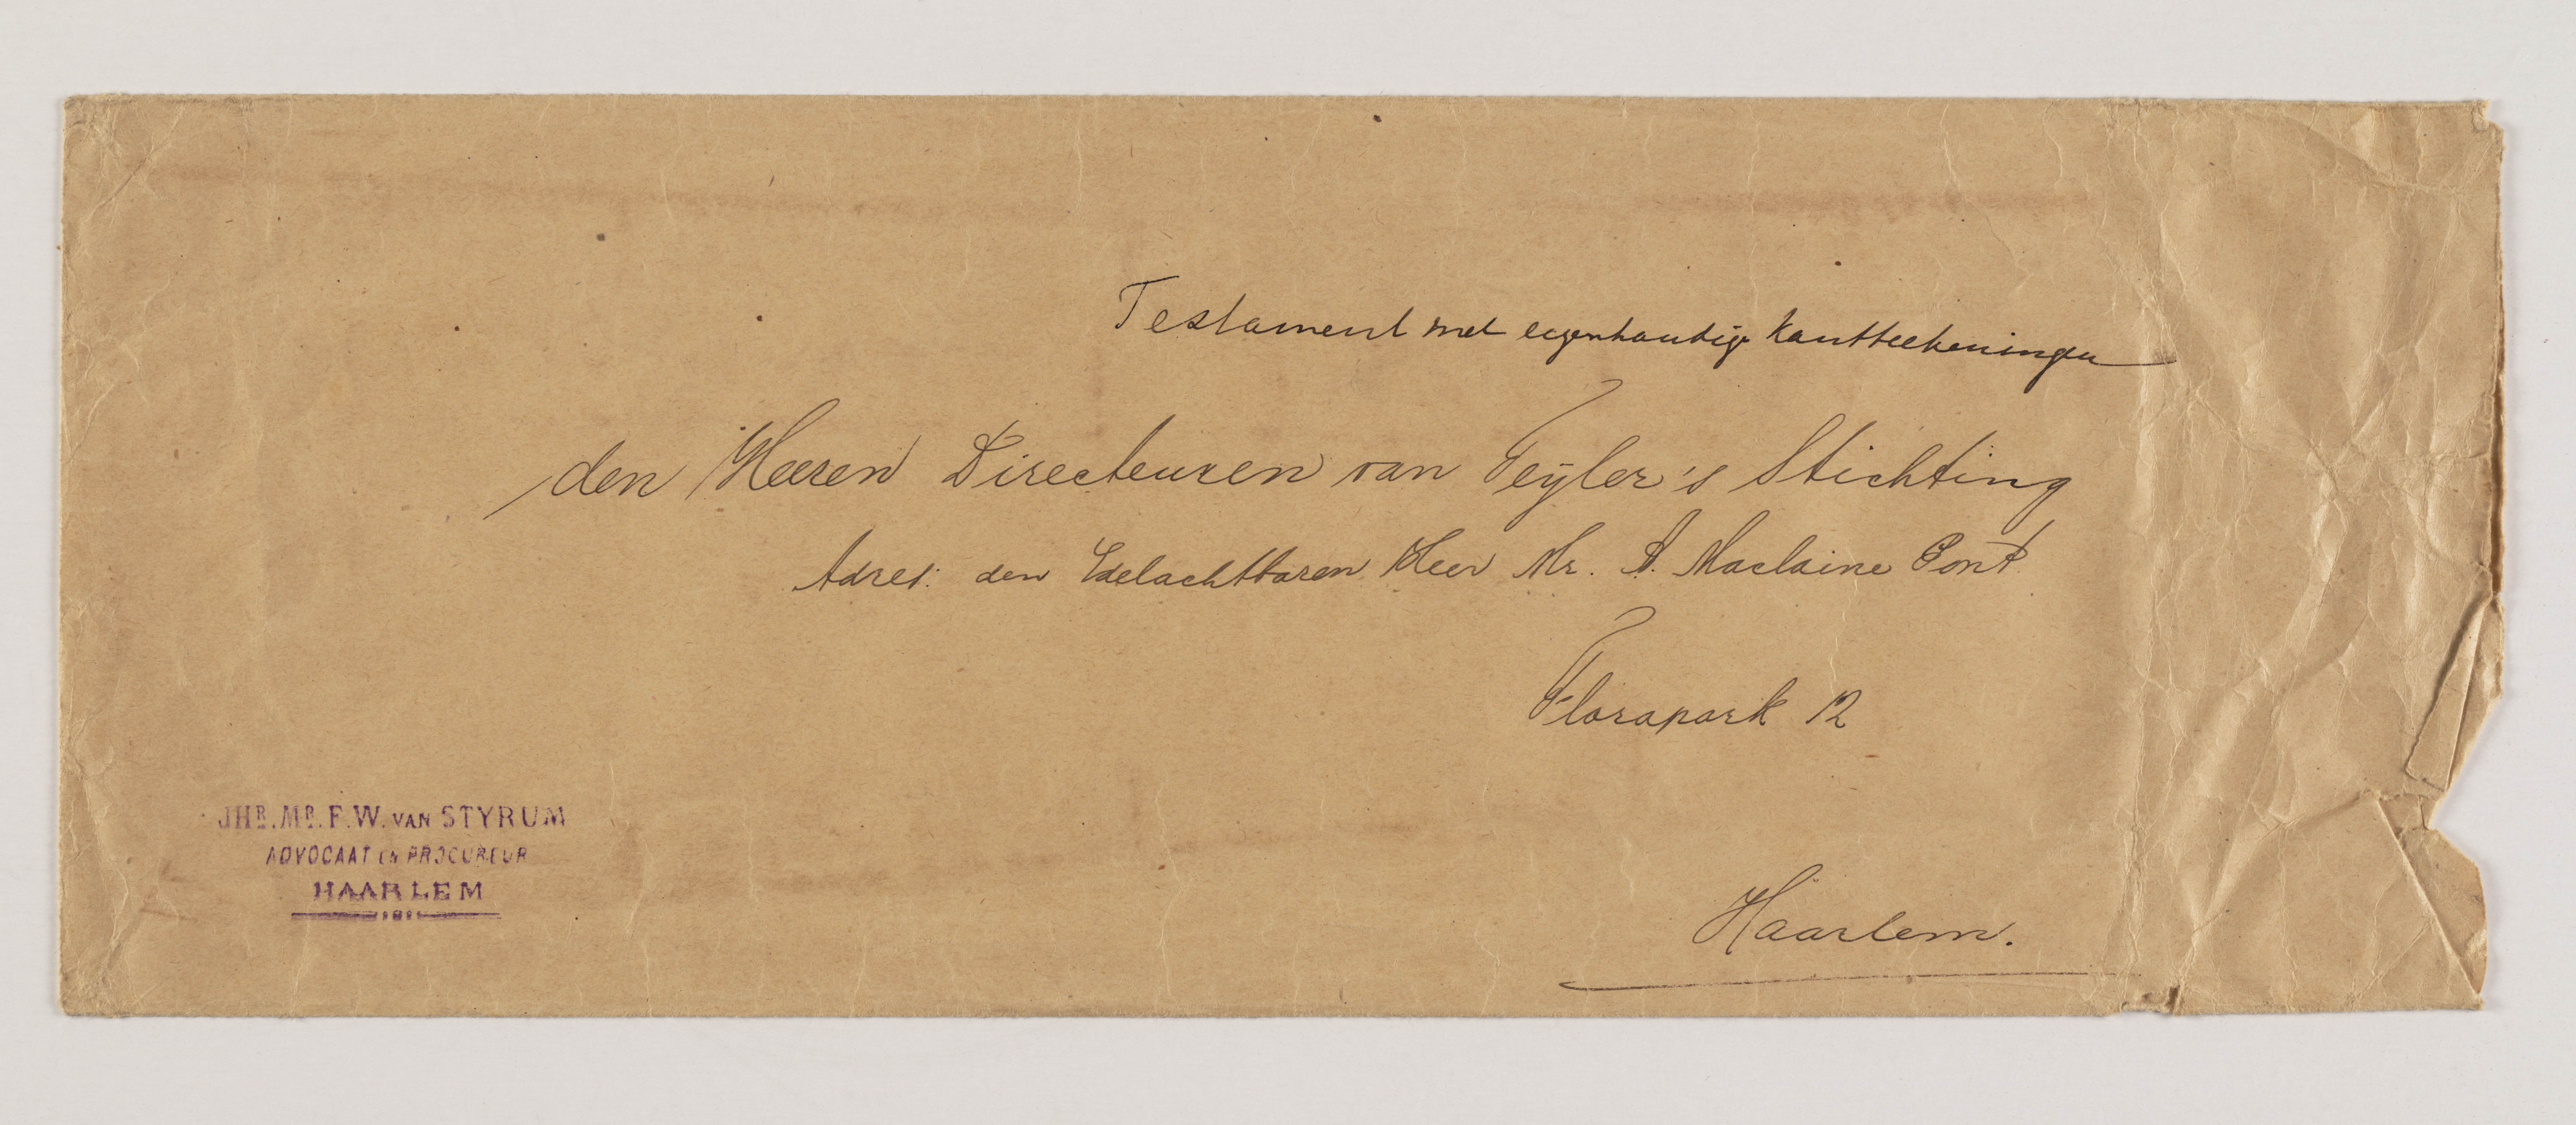 Testament met eigenhandige kantteekeningen
den Heeren Directeuren van Teyler's Stichting
Adres: den Edelachtbaren Heer Mr. A. Maclaine Pont
Florapark 12
Haarlem.
JHR. MR. F. W. VAN STYRUM
ADVOCAAT EN PROCUREUR
HAARLEM